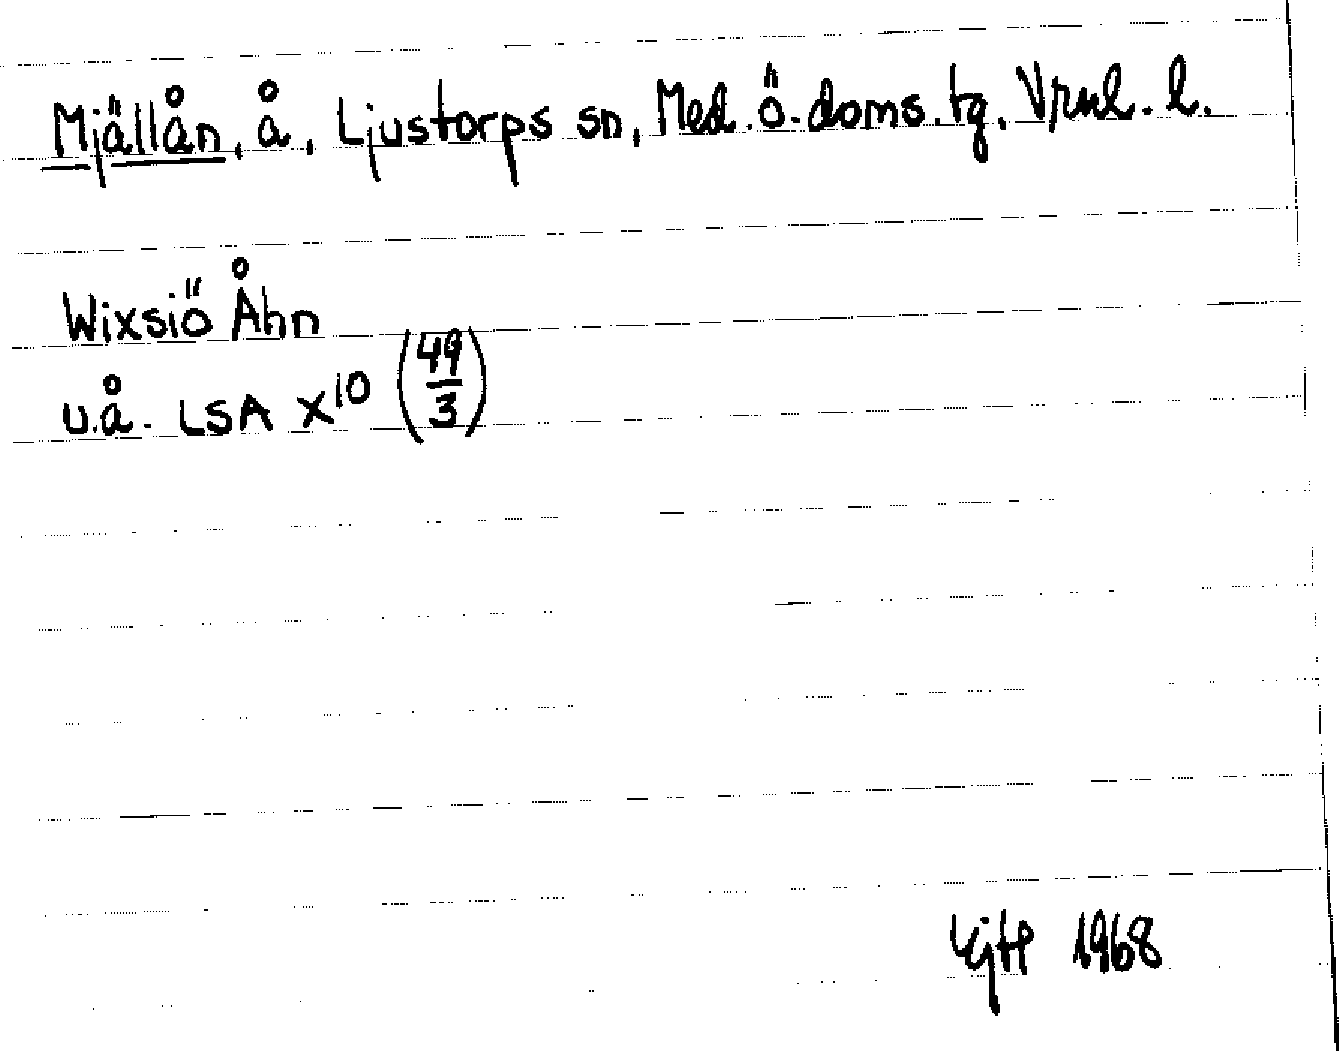 Mjällån, å, Ljustorps sn, Med. ö. doms. tg. Vrnl. l.
Wixsiö Åhn
u.å. LSA X¹⁰ (49/3)
1968